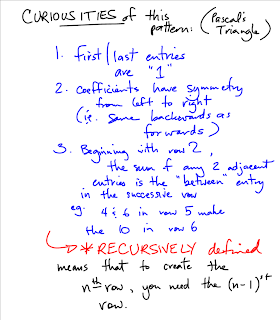 CURIOUSITIES of this
pattern: (Pascal's
Triangle)
1. First/last entries
are "1"
2. Coefficients have symmetry
from left to right
(ie. same backwards as
forwards)
3. Beginning with row 2,
the sum of any 2 adjacent
entries is the "between" entry
in the successive row
eg. 4 & 6 in row 5 make
the 10 in row 6
* RECURSIVELY defined
means that to create the
nth row, you need the (n-1)st
row.